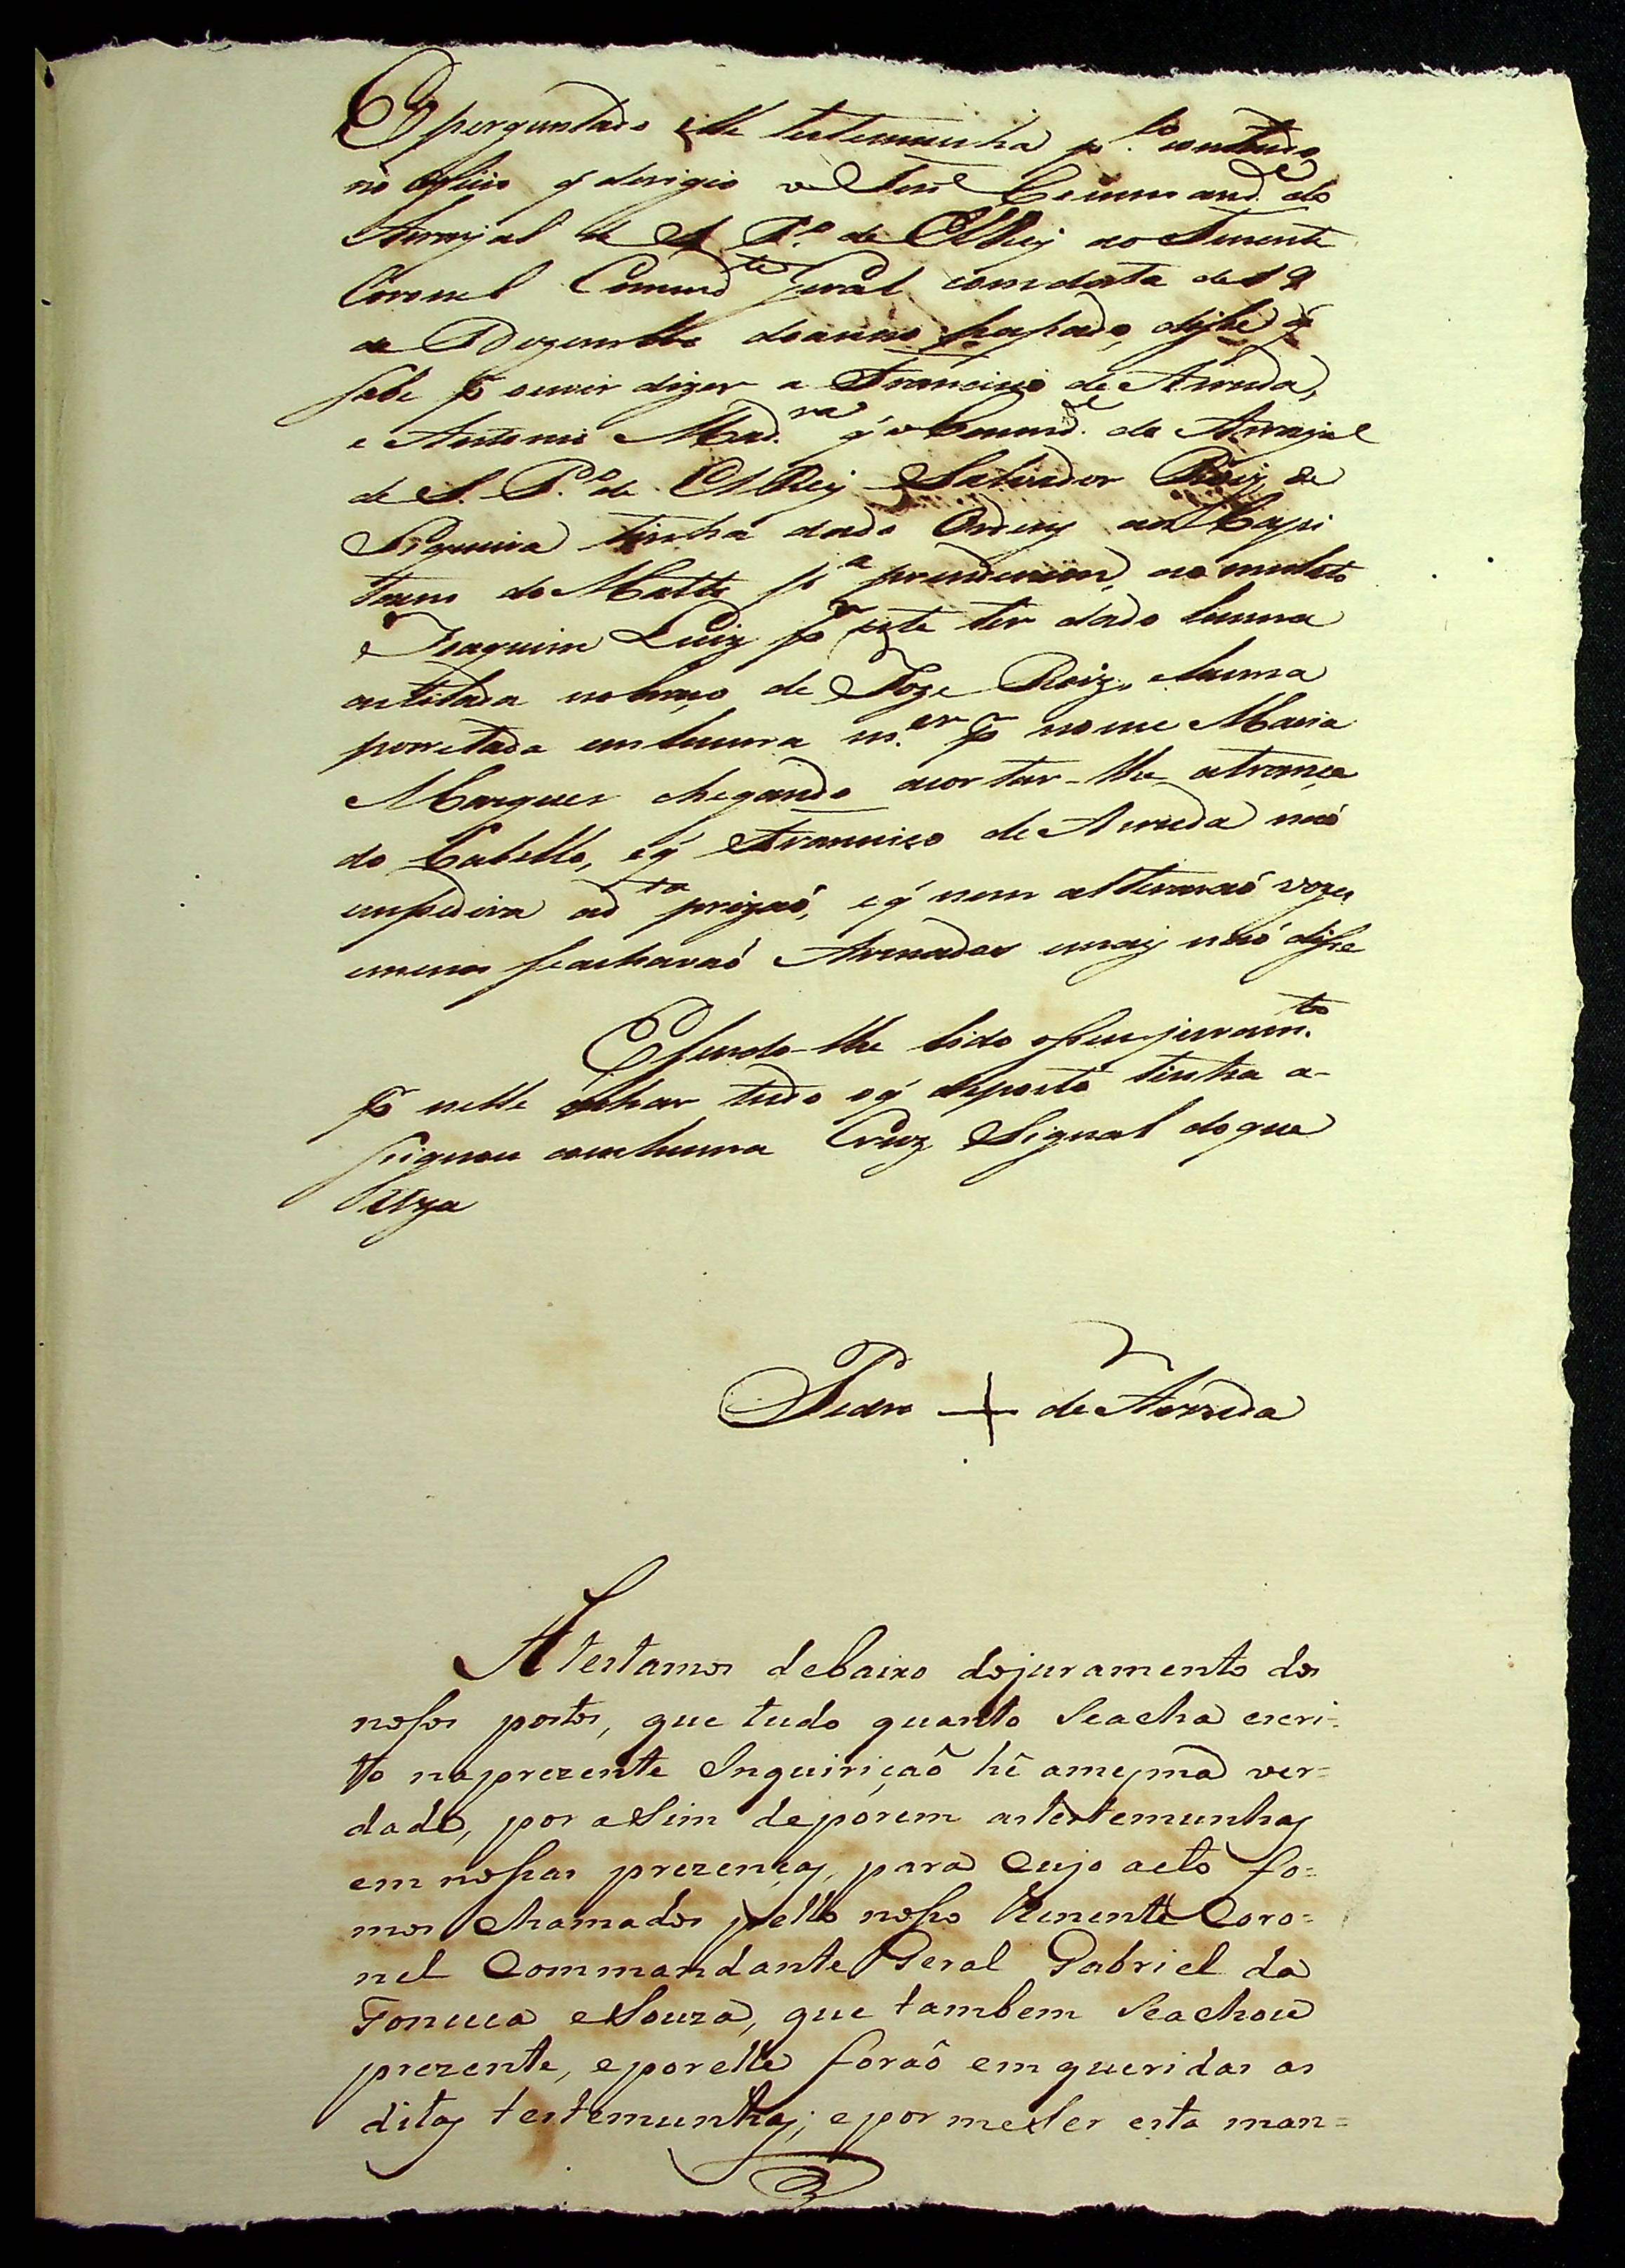 E perguntado elle testemunha p.lo contheudo
no Oficio q̃ derigio o Ten.e Command.e do
Arraial de S. P.o de ElRey ao Tenente
Coronel Comand.te Geral com data de 12
de Dezembro do anno passado, disse q̃
sabe p̃ ouvir dizer a Francisco de Arruda,
e Antonio Mad.ra q̃ o Comand.e do Arrayal
de S. P.o de ElRey Salvador Roiz de
Siqueira tinha dado Ordens ao Capi
taens do Matto p.a prenderem ao mulato
Joaquim Luiz p̃r este ter dado huma
cutilada no braço de Joze Roiz, e huma
porretada em huma m.er p̃ nome Maria
Marques chegando a cortar-lhe a trança
do Cabello, e q̃ Francisco de Arruda naó
empedira a d.ta prizaó, e q̃ nem alteraraó vozes
e menos se acharaó Armados e mais naó disse
E sendo-lhe lido o seu juram.to
p̃ nelle achar tudo o q̃ deposto tinha a-
signou com huma Cruz Signal do que
Uza
Pedro + de Arruda
Atestamos debaixo do juramento dos
nosos postos, que tudo quanto se acha escri-
to na prezente Inquiriçaõ hê a mesma ver=
dade, por asim deporem as testemunhas
em nossas prezenças, para cujo acto fo=
mos chamados pello nosso Tenente Coro=
nel Commandante Geral Gabriel da
Fonceca e Souza, que tambem se achou
prezente, e por elle foraõ emqueridas as
ditas testemunhas; e por me ser esta man=